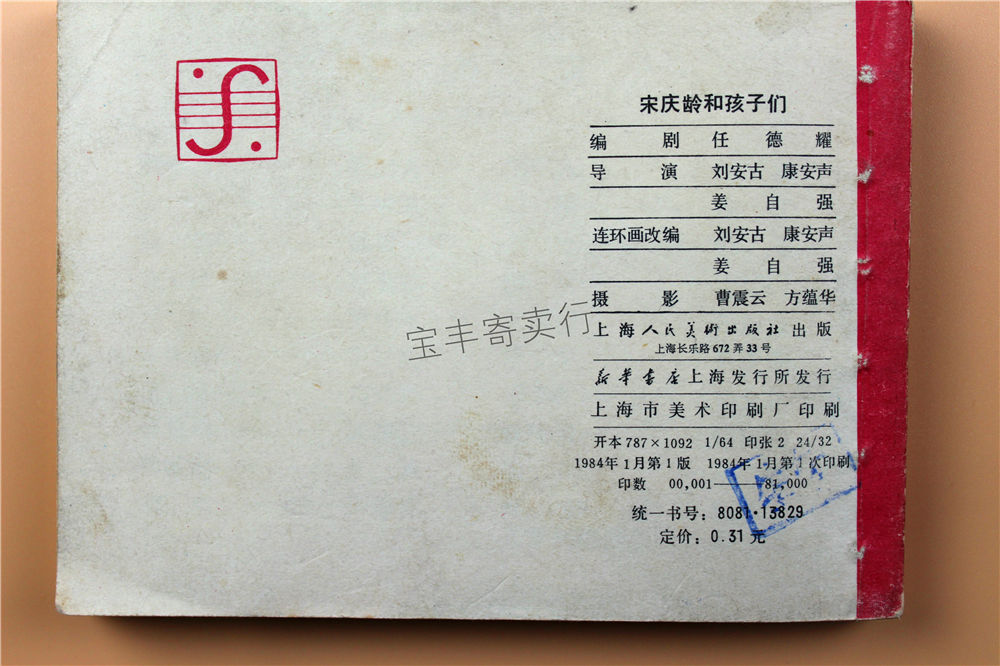 宋庆龄和孩子们
编 剧 任 德 耀
导 演 刘安古 康安声
姜 自 强
连环画改编 刘安古 康安声
姜 自 强
摄 影 曹震云 方蕴华
上海人民美術出版社出版
上海长乐路672弄33号
新华书店上海发行所发行
上海市美术印刷厂印刷
开本 787×1092 1/64 印张 2 24/32
1984年1月第1版 1984年1月第1次印刷
印数 00,001——81,000
统一书号：8081·13829
定价：0.31元
宝丰寄卖行